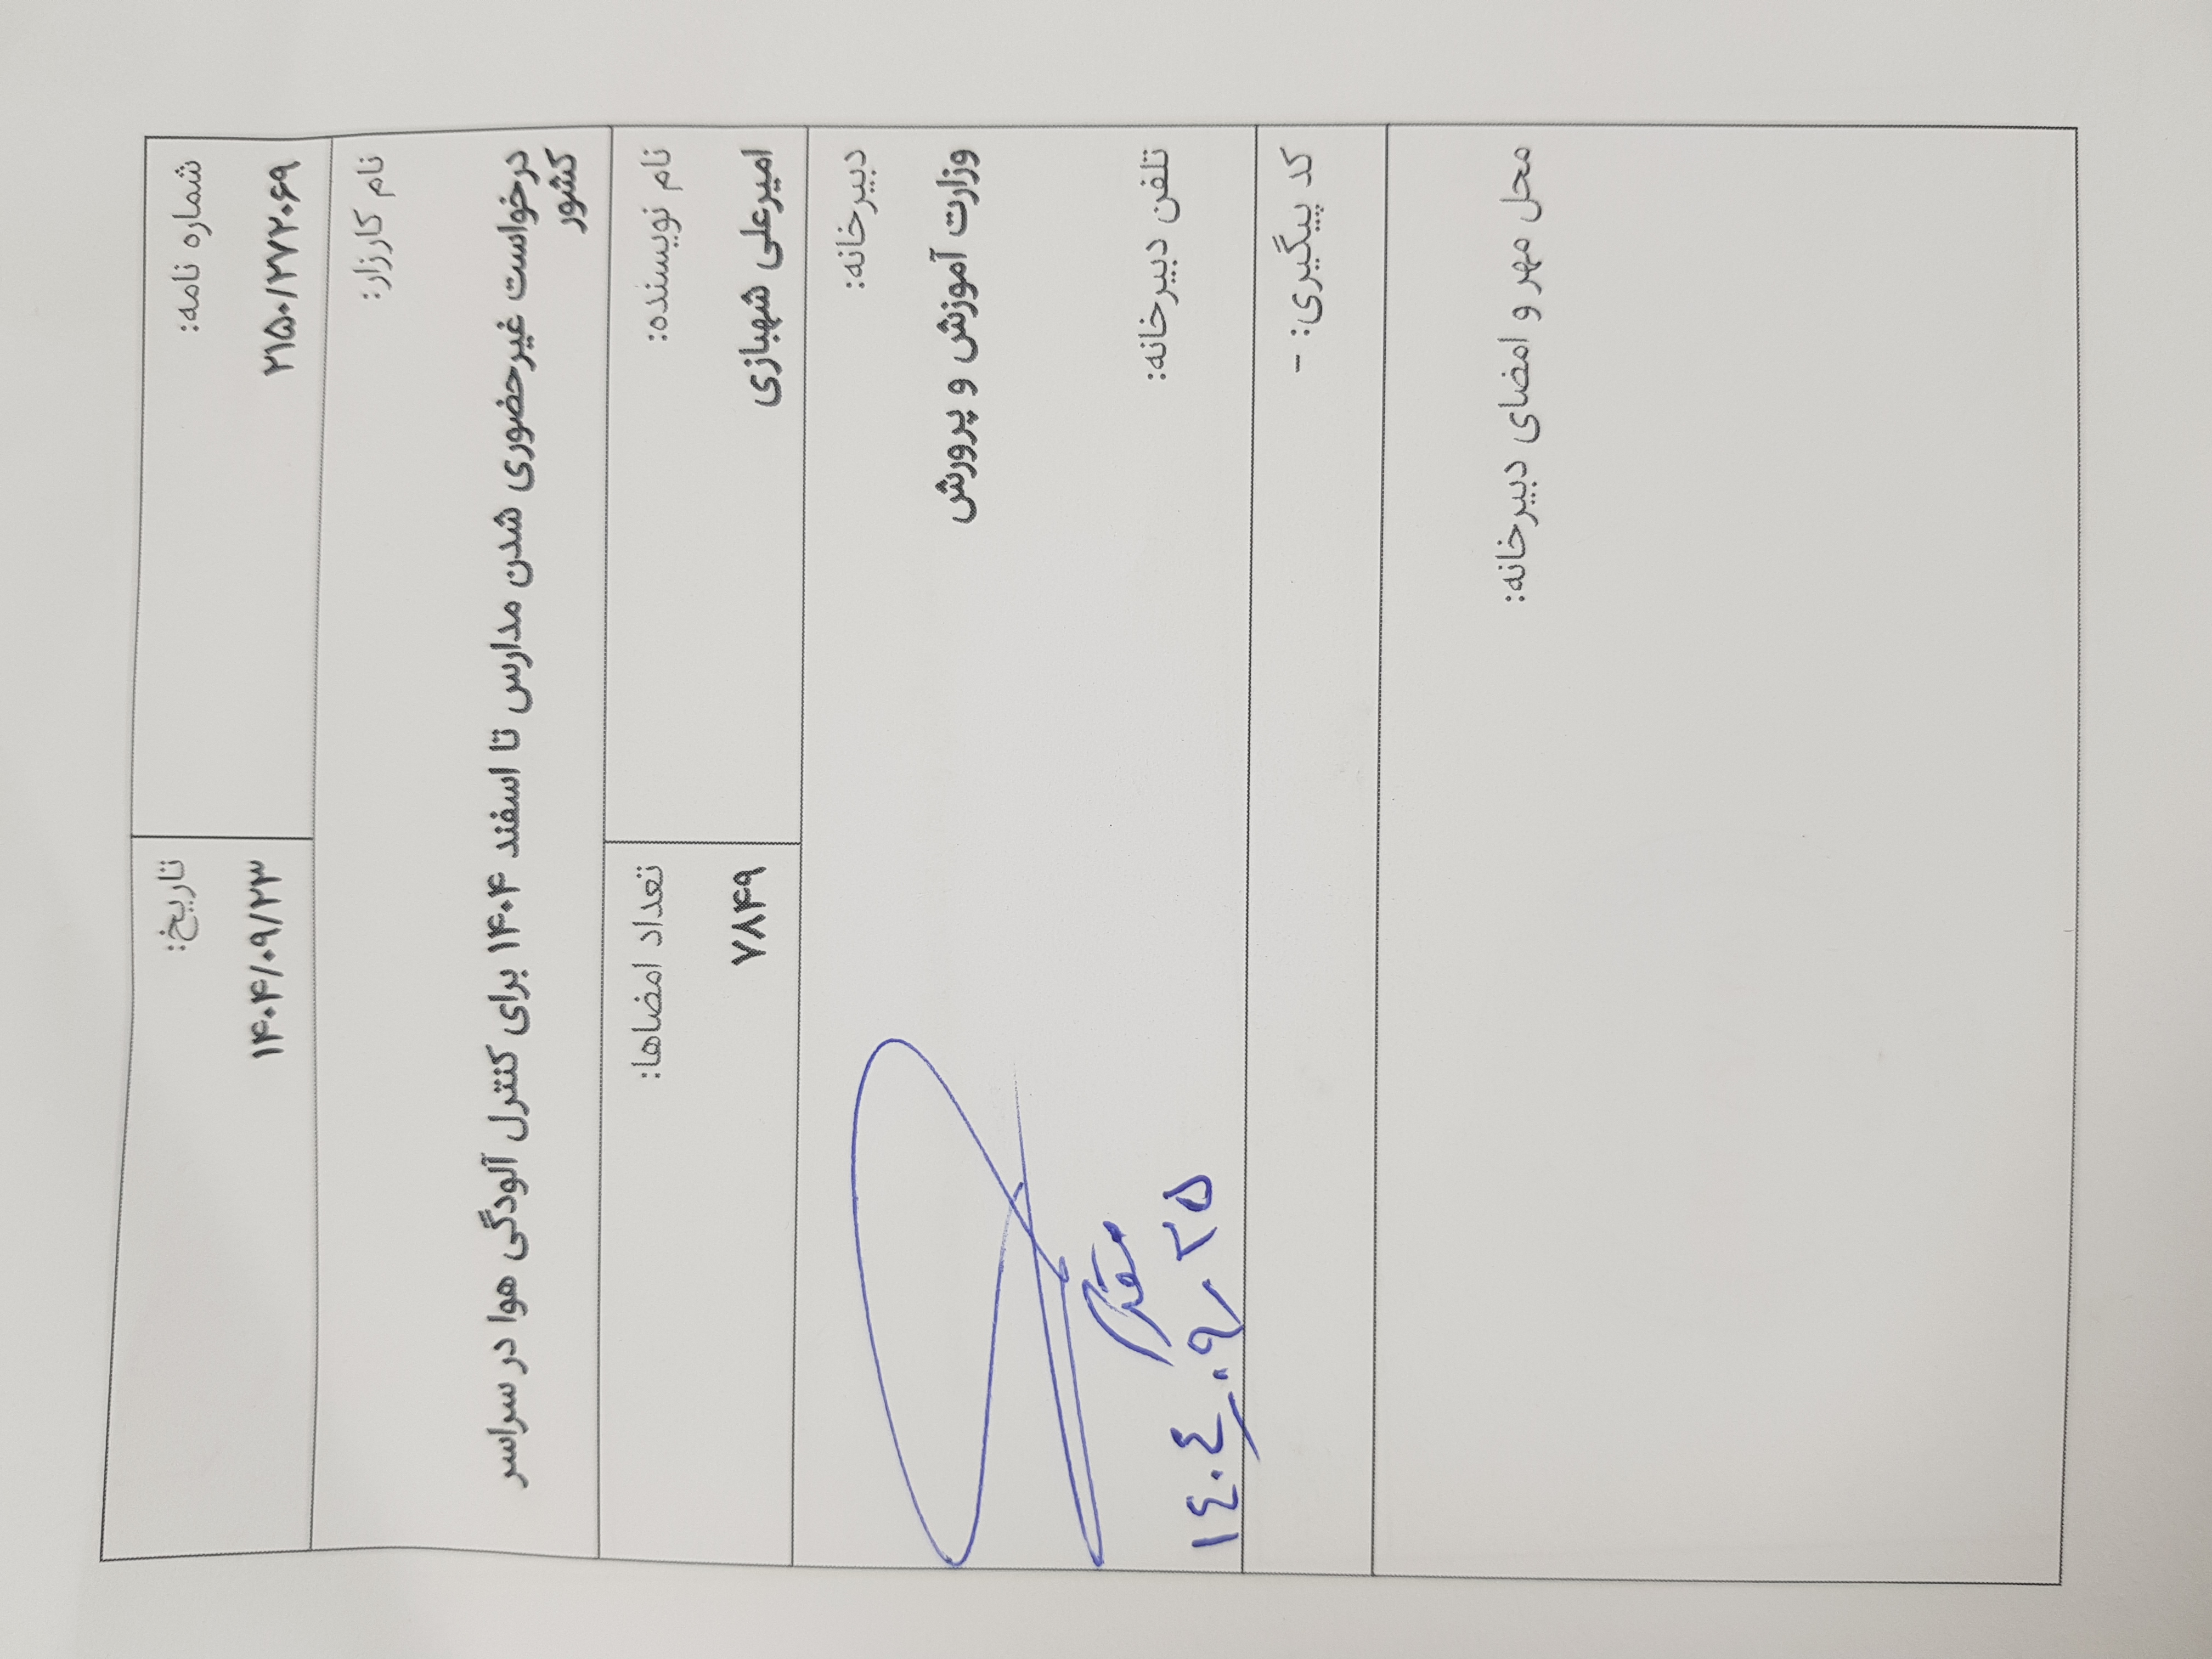 شماره نامه:
۲۱۵۰/۲۷۲۰۶۹
تاریخ:
۱۴۰۴/۰۹/۲۳
نام کارزار:
درخواست غیرحضوری شدن مدارس تا اسفند ۱۴۰۴ برای کنترل آلودگی هوا در سراسر
کشور
نام نویسنده:
امیرعلی شهبازی
تعداد امضاها:
۷۸۴۹
دبیرخانه:
وزارت آموزش و پرورش
تلفن دبیرخانه:
۱۴۰۴/۰۹/۲۵
کد پیگیری: -
محل مهر و امضای دبیرخانه: